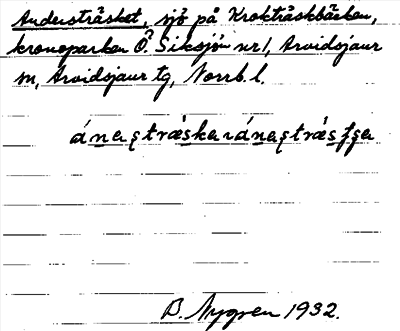 Andersträsket, sjö på Krokträskbäcken,
kronoparken Ö. Siksjön nr 1, Arvidsjaur
sn, Arvidsjaur tg, Norrb. l.
B. Nygren 1932.